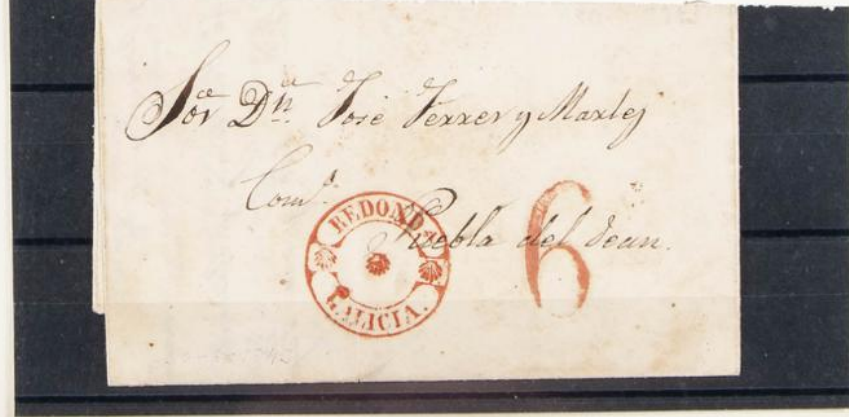 Sor Dn José Ferrer y Martej
Comd.
Puebla del Dean.
REDONDA
GALICIA.
6